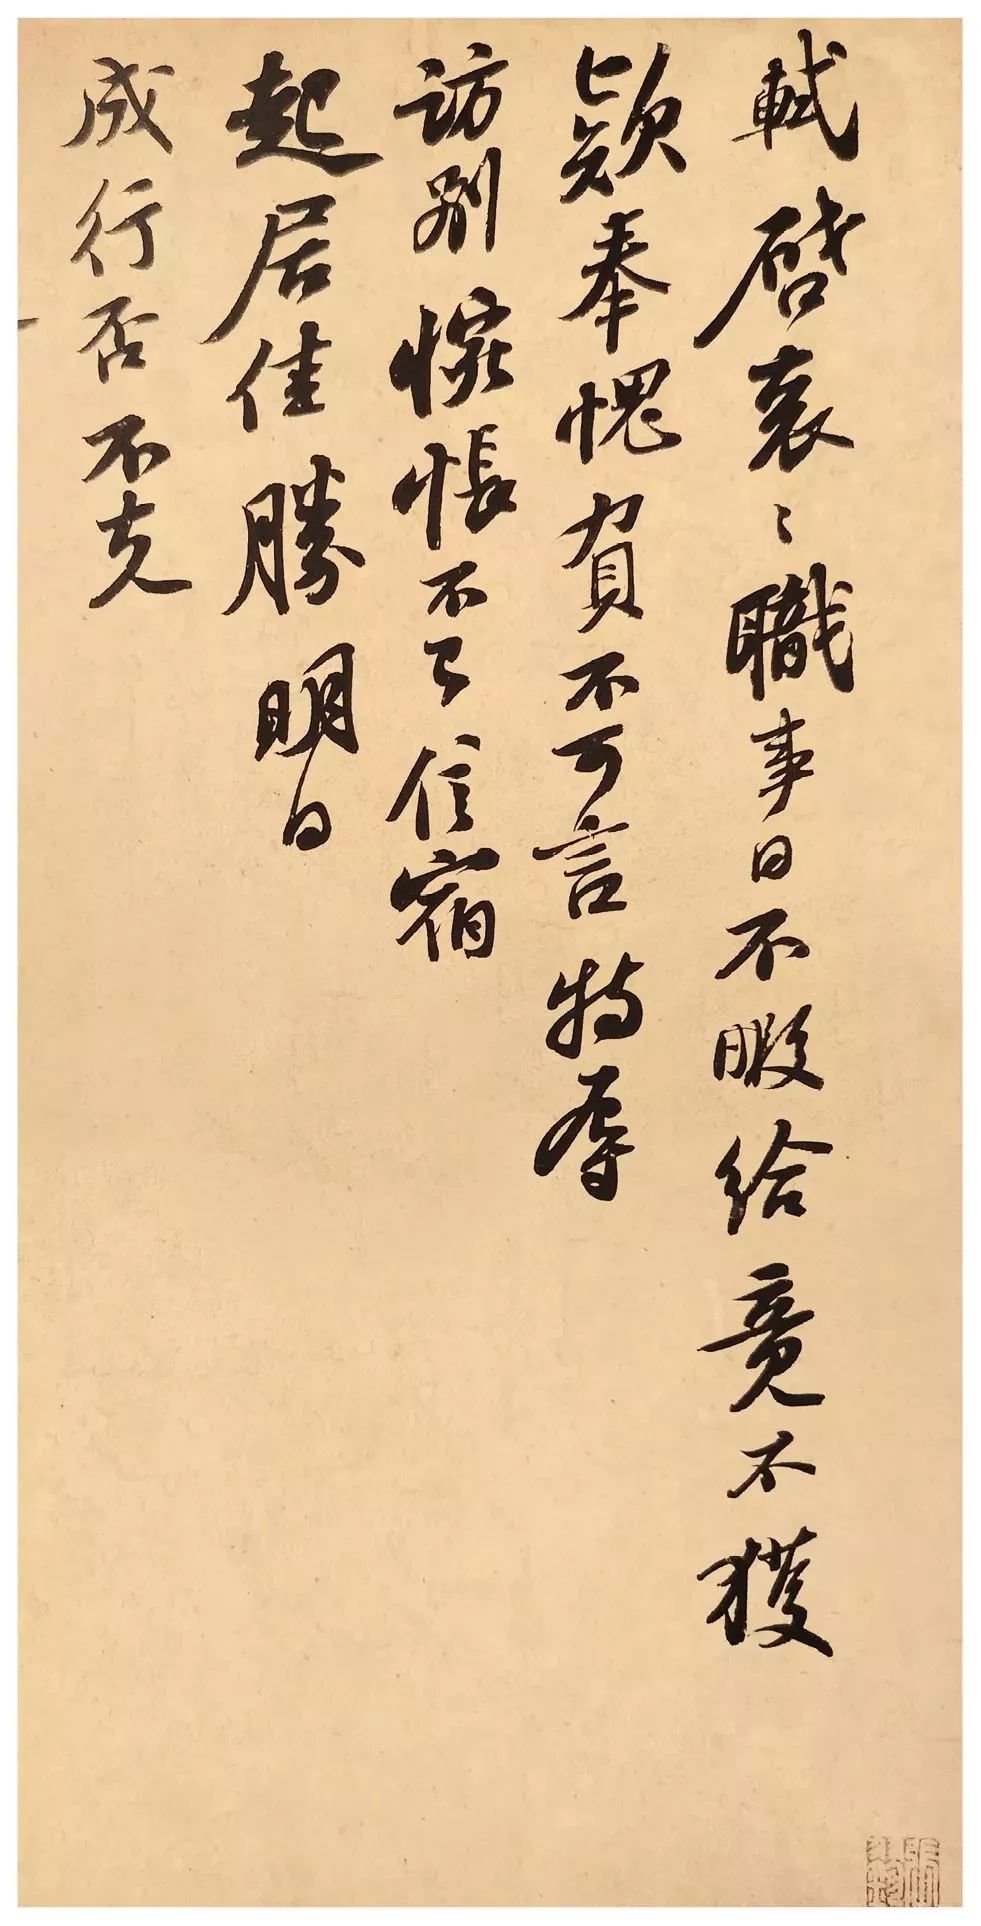 軾啓衰衰職事日不暇給竟不獲
款奉愧負不可言特辱
訪別惋悵不已信宿
起居佳勝明日
成行否不克